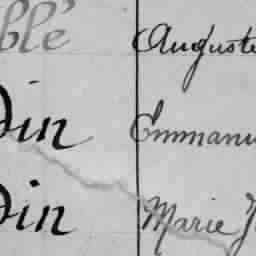 blé Auguste
din Emmanu
din Marie J